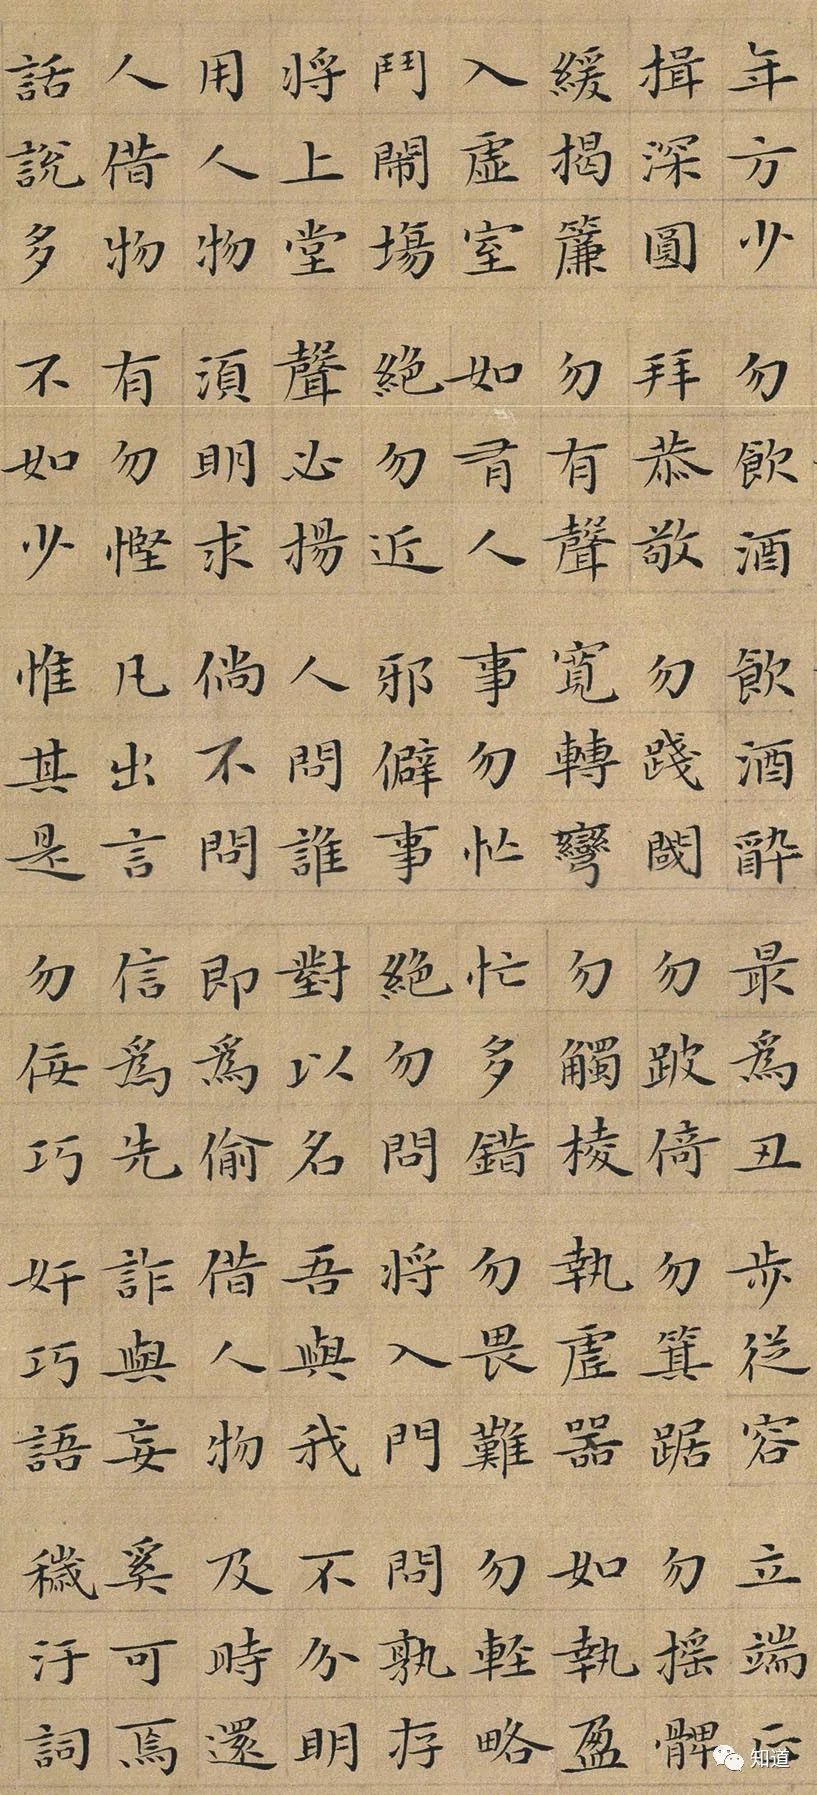 年方少勿飲酒飲酒醉最爲丑步從容立端正
揖深圓拜恭敬勿踐閾勿跛倚勿箕踞勿搖髀
緩揭簾勿有聲寬轉彎勿觸棱執虛器如執盈
入虛室如有人事勿忙忙多錯勿畏難勿輕略
鬥鬧場絕勿近邪僻事絕勿問將入門問孰存
將上堂聲必揚人問誰對以名吾與我不分明
用人物須明求倘不問即爲偷借人物及時還
人借物有勿慳凡出言信爲先詐與妄奚可焉
話說多不如少惟其是勿佞巧奸巧語穢汙詞
知道